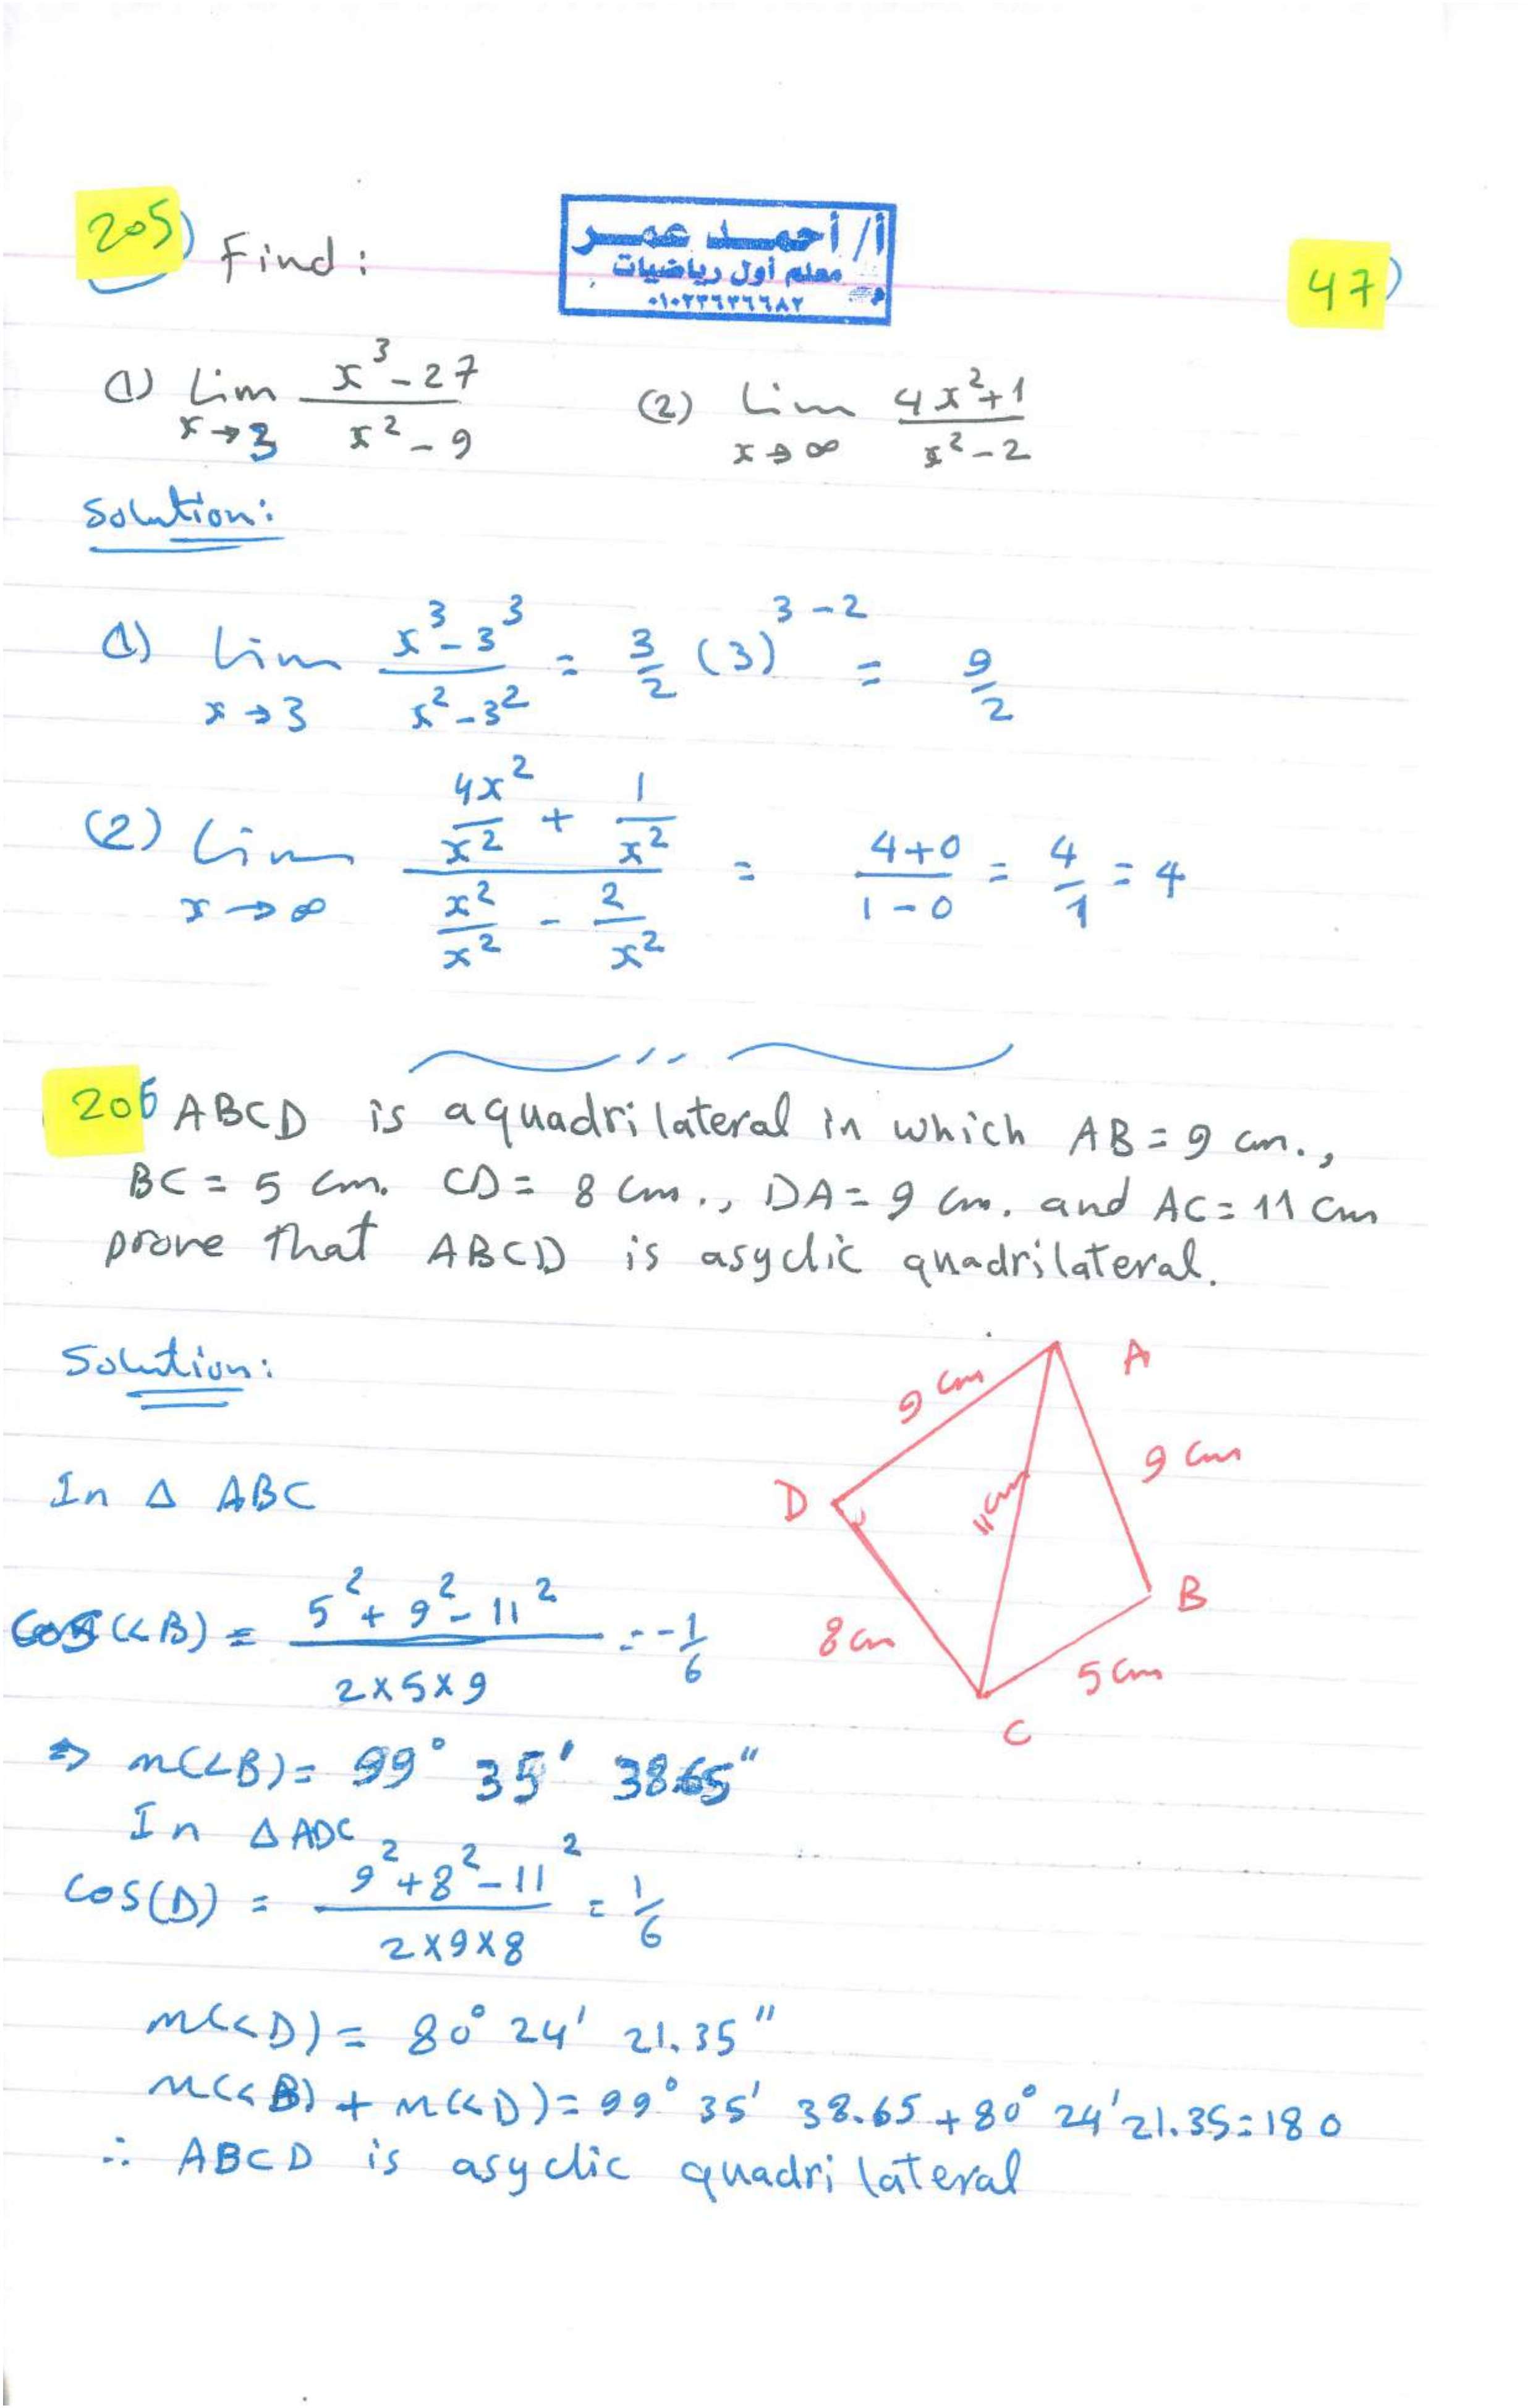 205) Find:
أ/ أحمد عمر
معلم أول رياضيات
٠١٠٢٢٦٣٦٦٨٢
47)
(1) Lim x→3 (x³-27)/(x²-9) (2) Lim x→∞ (4x²+1)/(x²-2)
Solution:
(1) Lim x→3 (x³-3³)/(x²-3²) = 3/2 (3)³⁻² = 9/2
(2) Lim x→∞ (4x²/x² + 1/x²)/(x²/x² - 2/x²) = (4+0)/(1-0) = 4/1 = 4
206 ABCD is a quadrilateral in which AB = 9 cm.,
BC = 5 cm. CD = 8 cm., DA = 9 cm. and AC = 11 cm
prove that ABCD is asyclic quadrilateral.
Solution:
A
9 cm
9 cm
D
11 cm
B
8 cm
5 cm
C
In Δ ABC
Cos(<B) = (5²+9²-11²)/(2×5×9) = -1/6
⇒ m(<B) = 99° 35' 38.65"
In Δ ADC
Cos(D) = (9²+8²-11²)/(2×9×8) = 1/6
m(<D) = 80° 24' 21.35"
m(<B) + m(<D) = 99° 35' 38.65 + 80° 24' 21.35 = 180
∴ ABCD is asyclic quadrilateral